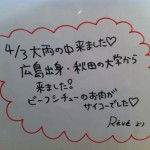 4/3 大雨の中来ました♡
広島出身・秋田の大学から
来ました!
ビーフシチューのお肉が
サイコーでした♡
Rêve より